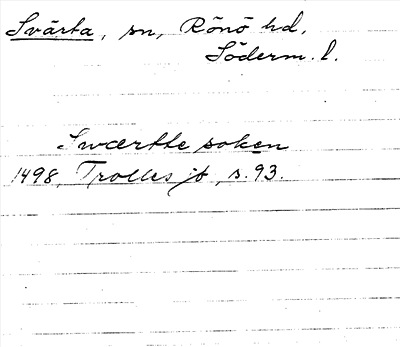 Svärta, sn, Rönö hd,
Söderm. l.
Swærtte soken
1498, Trolles jb, s. 93.